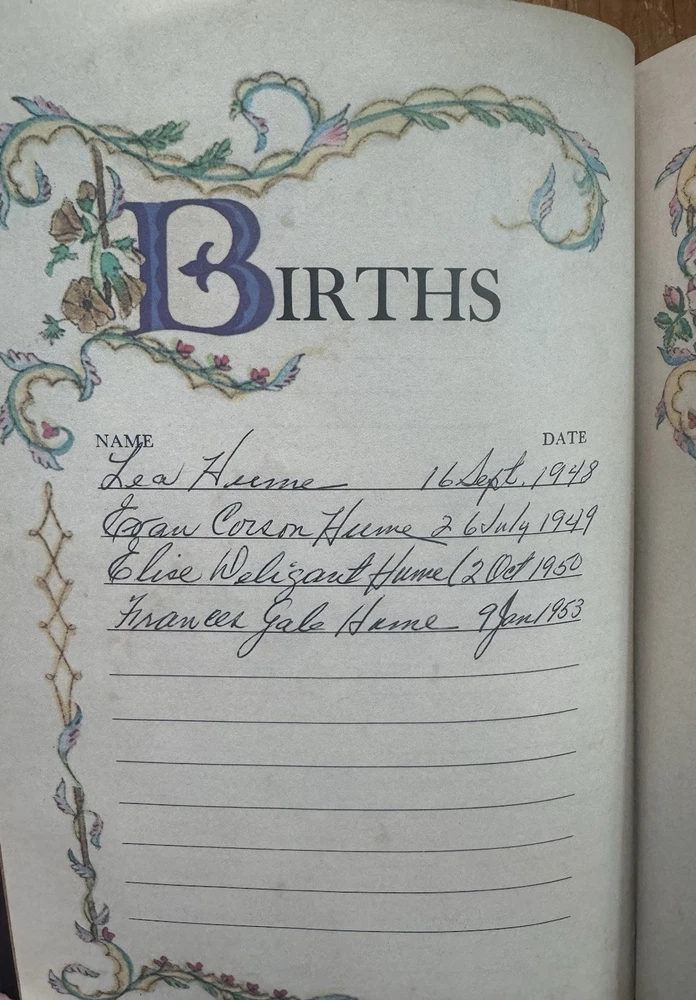 BIRTHS
NAME DATE
Lea Hume 16 Sept. 1948
Evan Corson Hume 26 July 1949
Elise Hume 12 Oct 1950
Frances Gale Hume 9 Jan 1953